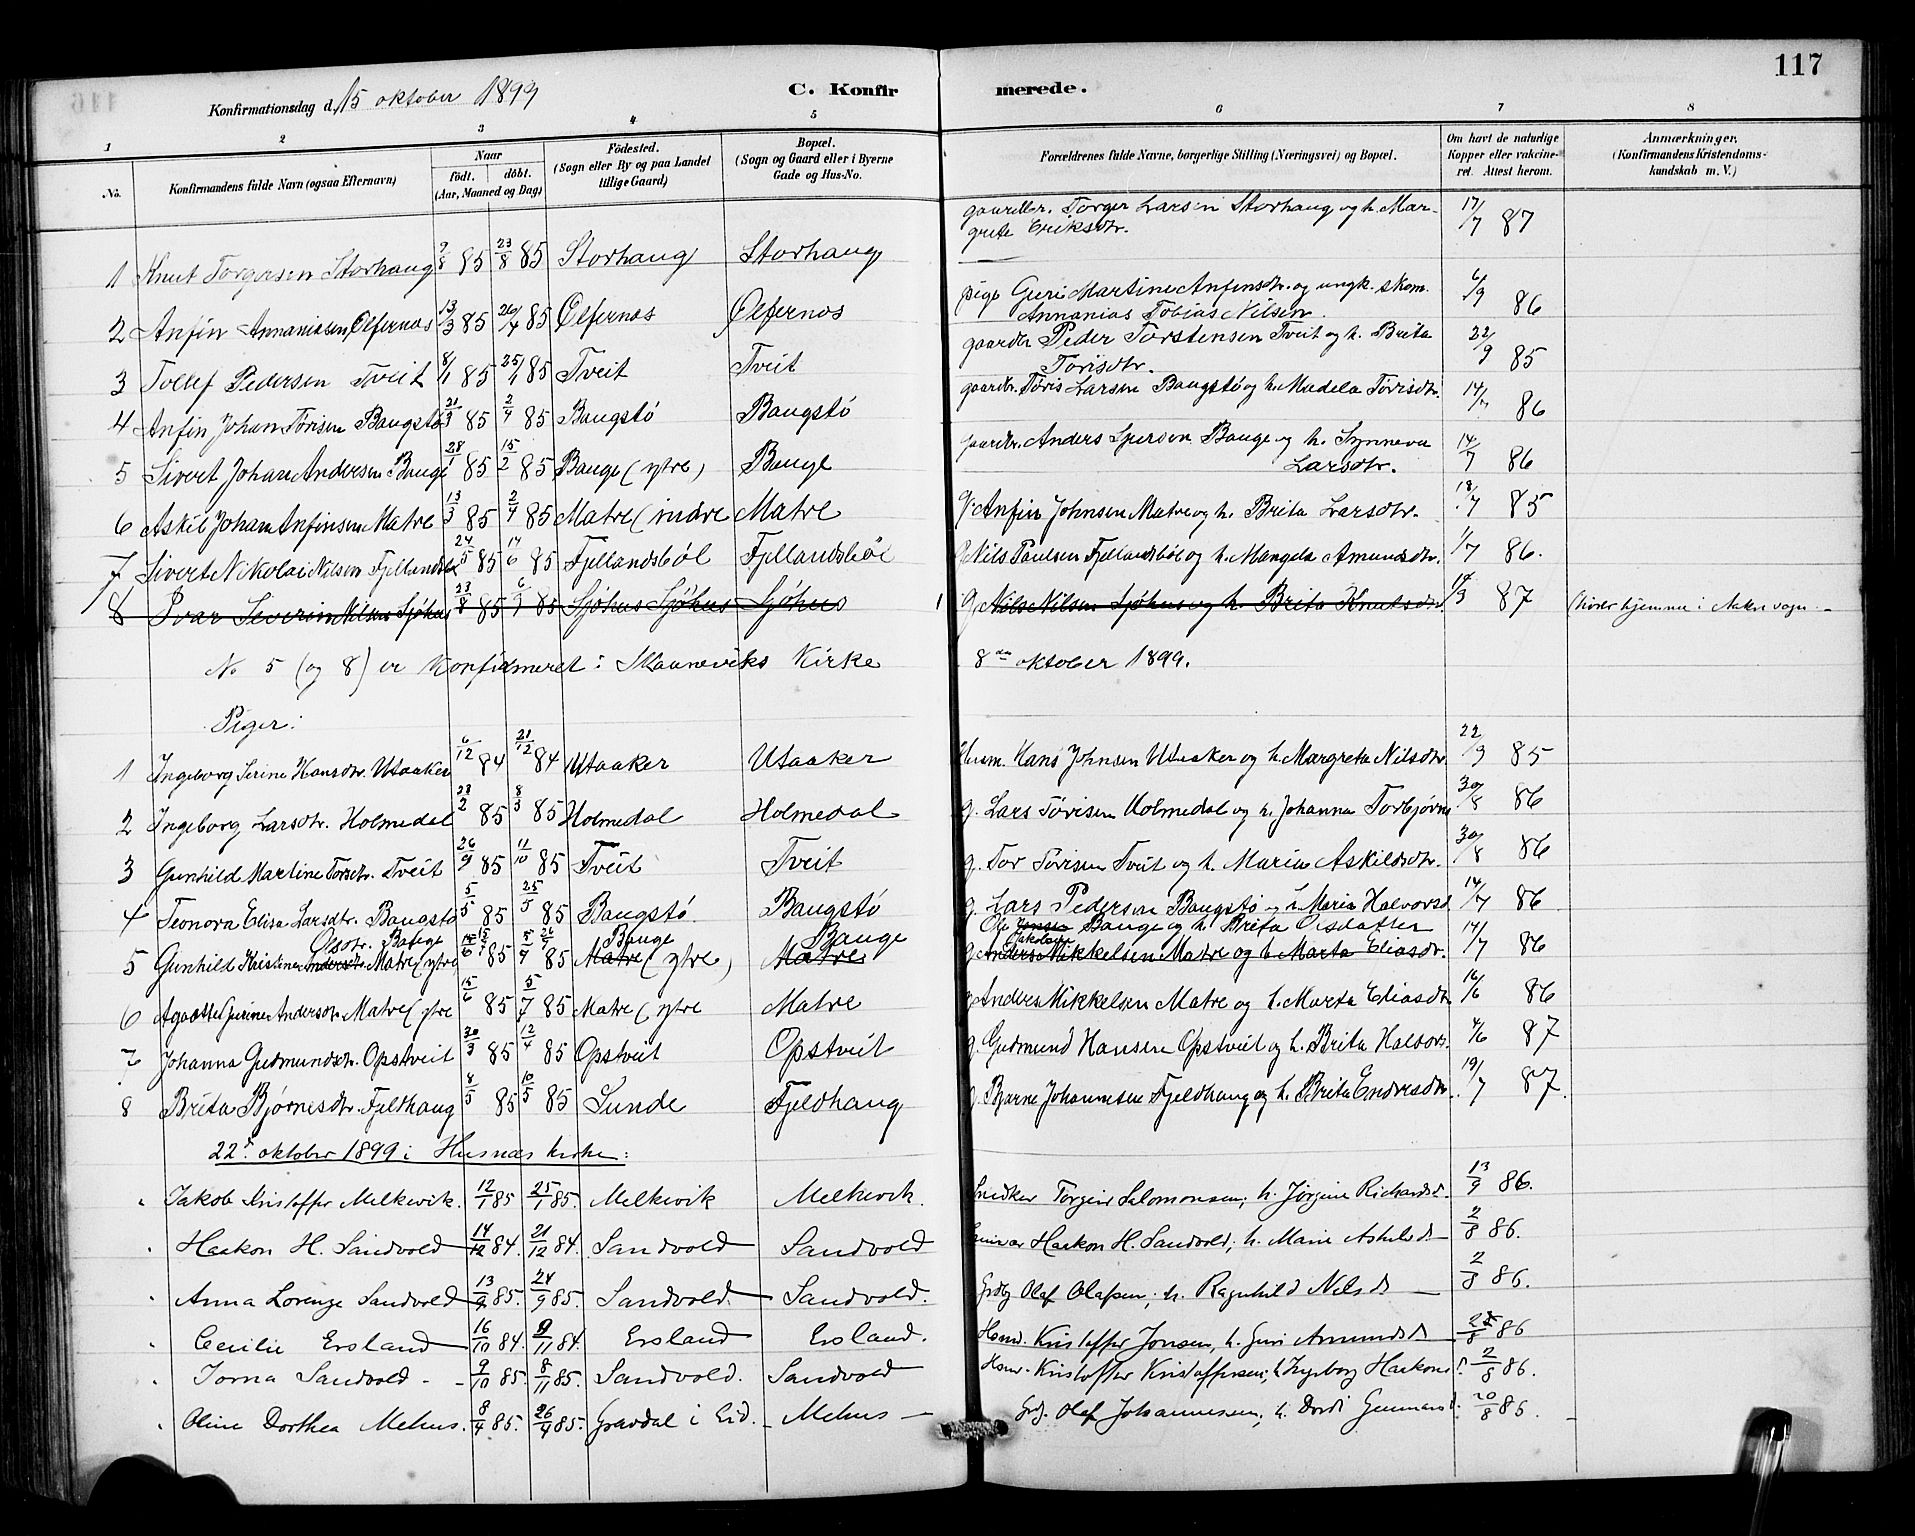 117
Konfirmationsdag d. 15 oktober 1899 C. Konfirmerede.
1 2 3 4 5 6 7 8
No. Konfirmandens fulde Navn (ogsaa Efternavn) Naar født. døbt. (Aar, Maaned og Dag) Födested. (Sogn eller By og paa Landet tillige Gaard) Bopæl. (Sogn og Gaard eller i Byerne Gade og Hus-No. Forældrenes fulde Navne, borgerlige Stilling (Næringsvei) og Bopæl. Om havt de naturlige Kopper eller vakcineret. Attest herom. Anmærkninger. (Konfirmandens Kristendomskundskab m. V.)
1 Knut Torgersen Storhaug 9/8 85 23/8 85 Storhaug Storhaug gaardbr. Torger Larsen Storhaug og h. Margrete Eriksdtr. 17/7 87
2 Anfin Annaniasen Ølfernos 13/3 85 26/4 85 Ølfernos Ølfernos pige Guri Martine Anfinsdtr. og ungk. skom. Annanias Tobias Nilsen. 6/9 86
3 Tollef Pedersen Tveit 8/1 85 25/1 85 Tveit Tveit gaardbr Peder Torstensen Tveit og h. Brita Tørisdtr. 22/9 85
4 Anfin Johan Tørisen Baugstø 21/3 85 2/4 85 Baugstø Baugstø gaardbr. Tøris Larsen Baugstø og h. Madela Tørisdtr. 14/7 86
5 Sivert Johan Andersen Bauge 28/1 85 15/2 85 Bauge (ytre) Bauge gaardbr. Anders Sjursen Bauge og h. Synneva Larsdtr. 14/7 86
6 Askil Johan Anfinsen Matre 13/3 85 2/4 85 Matre (indre Matre g. Anfin Johnsen Matre og h. Brita Larsdtr. 18/7 85
7 Sivert Nikolai Nilsen Fjellandsbøl 24/5 85 14/6 85 Fjellandsbøl Fjellandsbøl g. Nils Paulsen Fjellandsbøl og h. Mangela Amundsdtr. 1/7 86.
8 Ivar Severin Nilsen Sjøhus 23/8 85 6/9 85 Sjøhus Sjøhus Sjøhus g. Nils Nilsen Sjøhus og h. Brita Knutsdtr 12/9 87 (hører hjemme i Akre sogn.
No 5 (og 8) er konfirmeret i Skaaneviks Kirke 8de oktober 1899.
Piger:
1 Ingeborg Serine Hansdtr. Utaaker 6/12 84 21/12 84 Utaaker Utaaker Husm. Hans Johnsen Utaaker og h. Margreta Nilsdtr. 22/9 85
2 Ingeborg Larsdtr. Holmedal 28/2 85 8/3 85 Holmedal Holmedal g. Lars Tørisen Holmedal og h. Johanna Torbjørns 30/8 86
3 Gunhild Martine Torsdtr. Tveit 26/9 85 11/10 85 Tveit Tveit g. Tor Tørisen Tveit og h. Maria Askildsdtr. 30/8 86
4 Teonora Elisa Larsdtr. Baugstø 5/5 85 25/5 85 Baugstø Baugstø g. Lars Pedersen Baugstø og h. Maria Halvorsd 14/7 86
Olsdtr. Bauge Bauge Bauge Ole Jakobsen Bauge og h. Brita Olsdatter
5 Gunhild Kristine Andersdtr. Matre (ytre 85 85 Matre (ytre) Matre g. Anders Mikkelsen Matre og h. Marta Eliasdtr. 14/7 86
6 Agathe Gurine Andersdtr. Matre (ytre 15/6 85 5/7 85 Matre (ytre Matre g. Anders Mikkelsen Matre og h. Marta Eliasdtr. 16/6 86
7 Johanna Gudmundsdtr. Opstveit 20/3 85 12/4 85 Opstveit Opstveit g. Gudmund Hansen Opstveit og h. Brita Halvors. 4/6 87
8 Brita Bjørnesdtr. Fjelhaug 8/5 85 10/5 85 Sunde Fjeldhaug g. Bjarne Johannesen Fjeldhaug og h. Brita Endresdtr. 19/7 87.
22de oktober 1899 i Husnæs kirke:
Jakob Kristoffer Melkevik. 12/1 85 25/1 85. Melkevik Melkevik. Snedker Torgeir Salomonsen; h. Jørgine Richardsd. 13/9 86.
Haakon H. Sandvold 14/12 84. 21/12 84. Sandvold Sandvold Haakon H. Sandvold; h. Marie Askelsd 2/8 86.
Anna Lorenze Sandvold 13/9 85. 24/9 85. Sandvold. Sandvold. Grdbg Olaf Olafsen; h. Ragnhild Nilsd 2/8 86.
Cecilie Ersland 16/10 84. 9/11 84. Ersland Ersland. Hsmd. Kristoffer Jonsen, h. Guri Amundsd 86
Jorna Sandvold 9/10 85. 8/11 85. Sandvold. Sandvold Hsmd. Kristoffer Kristoffersen; h. Ingeborg Haakonsd. 2/8 86.
Oline Dorthea Mehus. 8/4 85. 26/4 85. Gravdal i Eid. Mehus Grdb. Olaf Johannessen, h. Dordi Gunnarsd. 20/8 86.